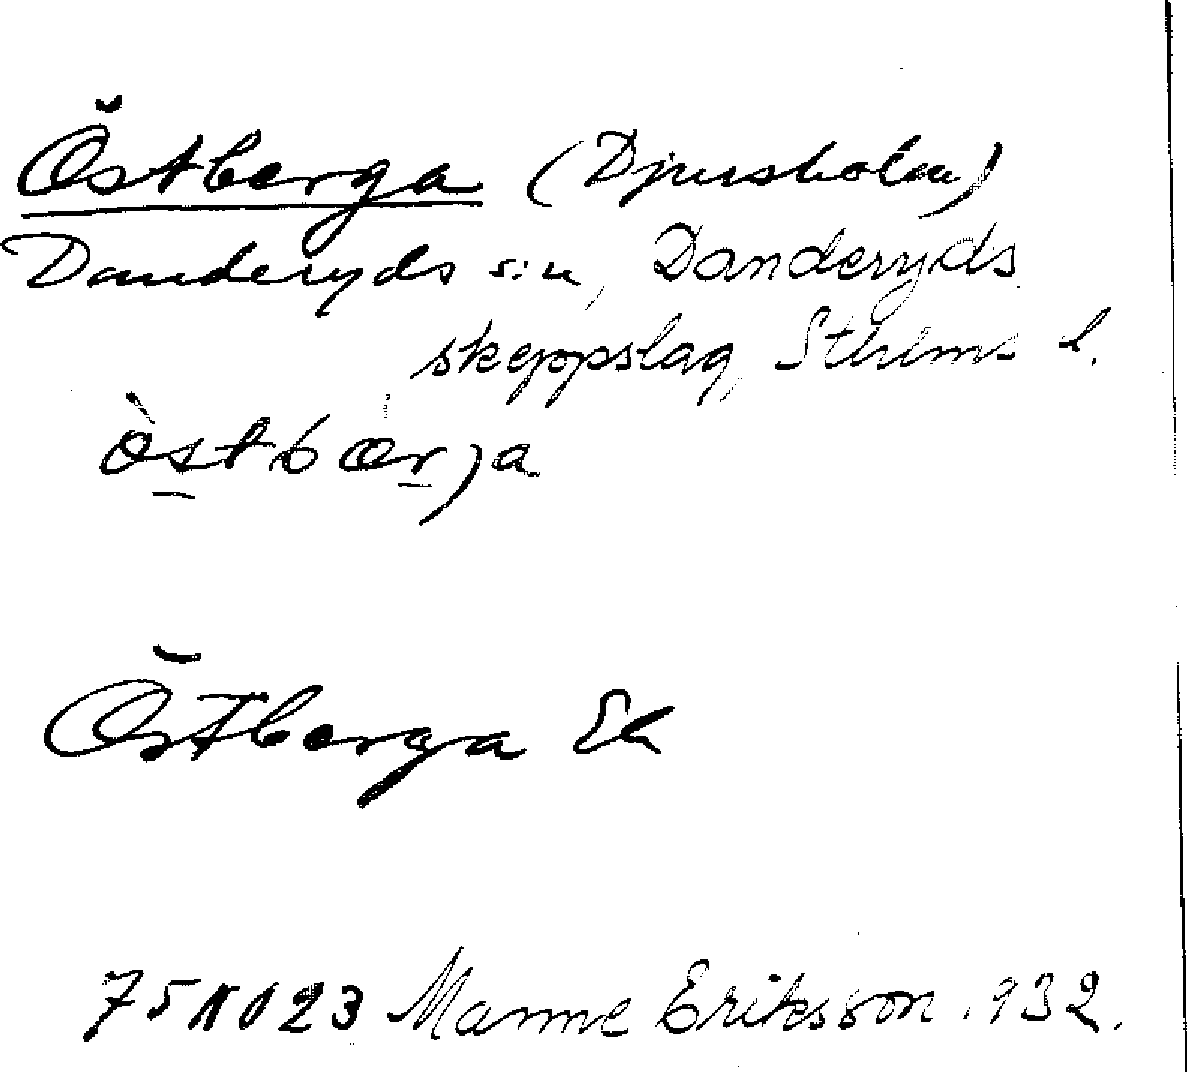 Östberga (Djursholm)
Danderyds sn, Danderyds
skeppslag, Sthlms l.
òstbærja
Östberga Ek
75N023 Manne Eriksson 1932.